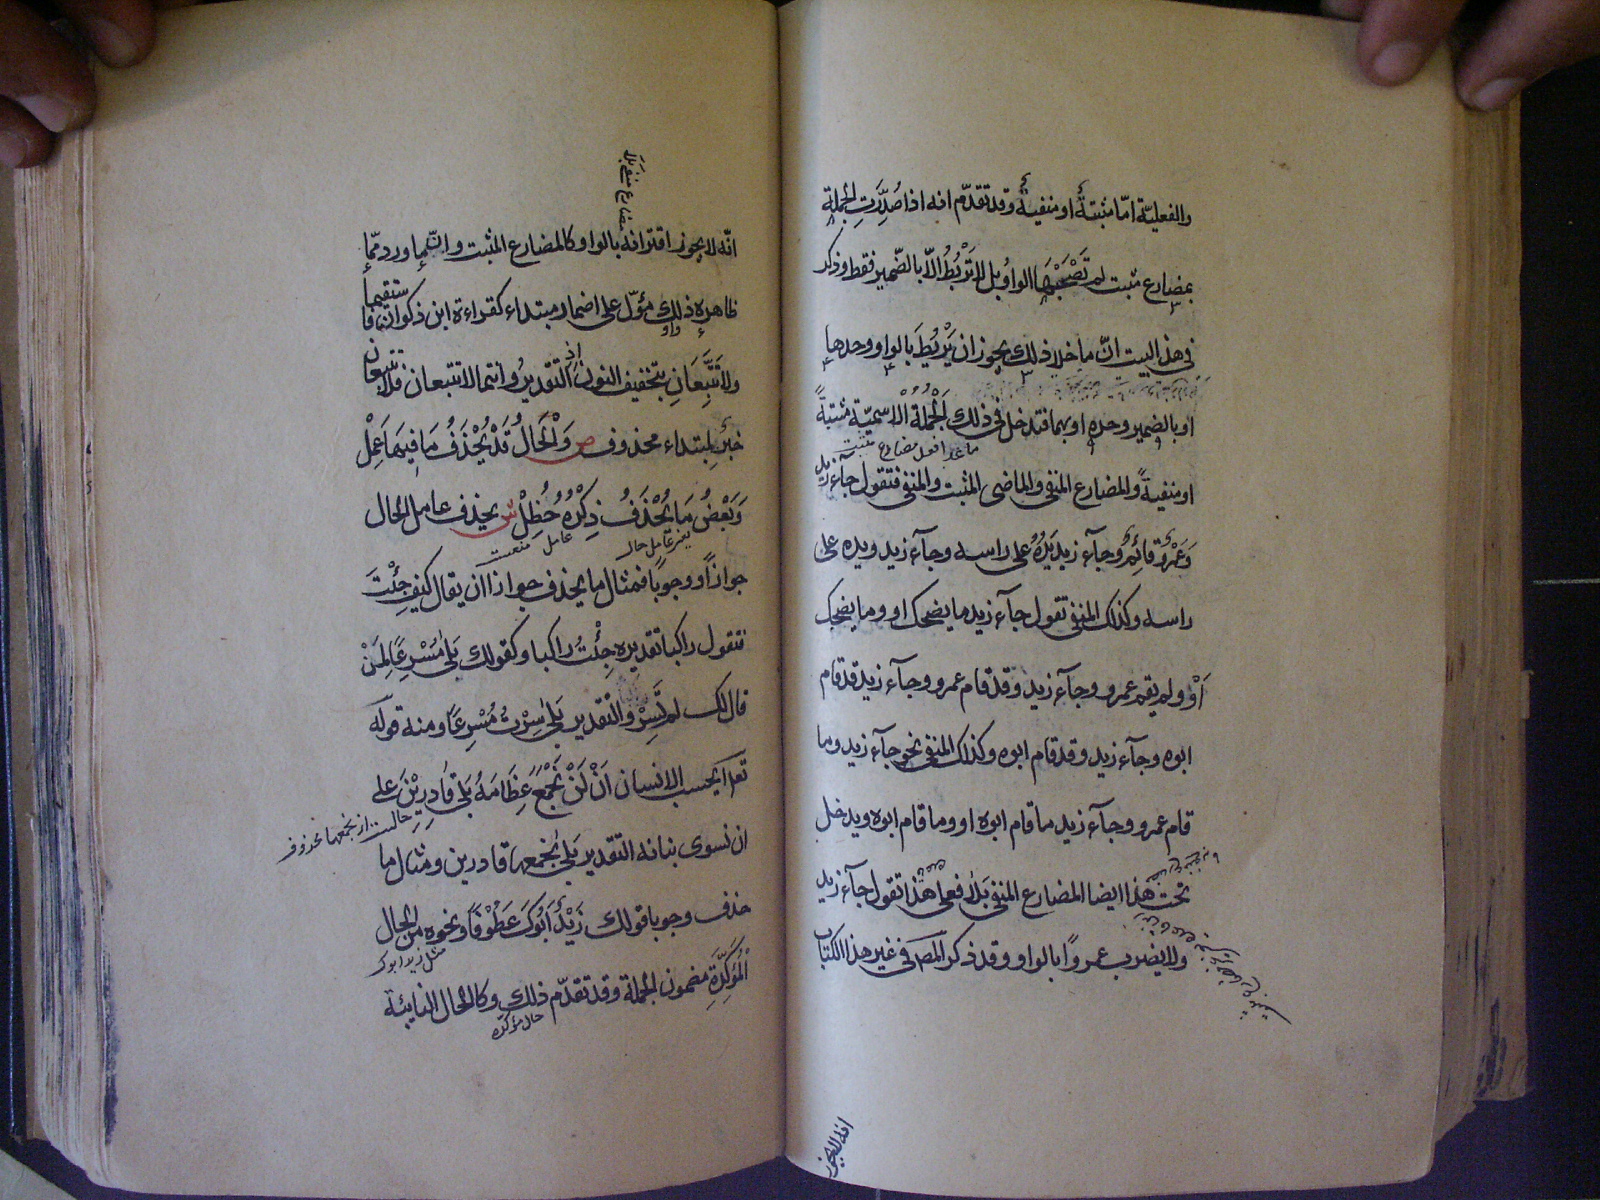 والفعليّة امّا مثبتة او منفية وقد تقدّم انه اذا صُدِّرَتِ الجملة
بمضارع مثبت لم تَصْحَبْهَا الواو بل لا تَرْبُطُ الّا بالضمير فقط وذكر
فى هذا البيت انّ ما خلا ذلك يجوز ان يَرْبُطَ بالواو وحدها
او بالضمير وحده او بهما فتدخل فى ذلك الجُمْلَةُ الْاسميّة مثبتةً
ما عدا فعل مضارع مثبت
او منفيةً والمضارع المنفى والماضى المثبت والمنفى فتقول جآء زيد
وَعَمْرٌو قائِمٌ وجآء زيد يَدُهُ على راسه وجآء زيد ويده على
راسه وكذلك المنفى تقول جآء زيد ما يضحك او وما يضحك
اَوْ ولم يقم عمرو وجآء زيد وقد قام عمرو وجآء زيد قد قام
ابوه وجآء زيد وقد قام ابوه وكذلك المنفى نحو جآء زيد وما
قام عمرو وجآء زيد ما قام ابوه او وما قام ابوه ويدخل
تحت هذا ايضا المضارع المنفى بلا فعلى هذا تقول جآء زيد
ولا يضرب عمروًا بالواو وقد ذكر المص فى غير هذا الكتاب
انه لا يجوز
مضارع منفى بلا
انّه لا يجوز اقترانه بالواو كالمضارع المثبت وانّما ورد ممّا
ظاهره ذلك مؤوّل على اضمار مبتداء كقراءة ابن ذكوان فاستقيما
ولا تَتَّبِعَانِ بتخفيف النون اذ التقديرُ وانتما لا تتبعان فلا تتبعان
خبرٌ لمبتداء محذوف ص وَالْحَالُ قَدْ يُحْذَفُ مَا فِيهَا عَمِلْ
وَبَعْضُ مَا يُحْذَفُ ذِكْرُهُ حُظِلْ ش يحذف عامل الحال
يعنى عامل حال
عامل
جوازًا ووجوبًا فمثال ما يحذف جوازا ان يقال كيف جِئْتَ
فتقول راكبا تقديره جِئْتُ راكبا وكقولك بَلى مُسْرِعًا لِمَنْ
قال لك لم تَسِرْ والتقدير بَلى سِرْتُ مُسْرِعًا ومنه قوله
تعه ايحسب الانسان اَنْ لَنْ نَجْمَعَ عِظَامَهُ بَلى قَادِرِيْنَ على
حالست از نجمعها محذوف
ان نسوى بنانه التقدير بَلى نجمعها قادرين ومثال ما
حذف وجوبا قولك زَيْدٌ اَبُوكَ عَطُوْفًا ونحوه من الحال
مثل زيد ابوك
المُؤكِّدَةِ مضمون الجملة وقد تقدّم ذلك وكالحال النايبة
حال مؤكده